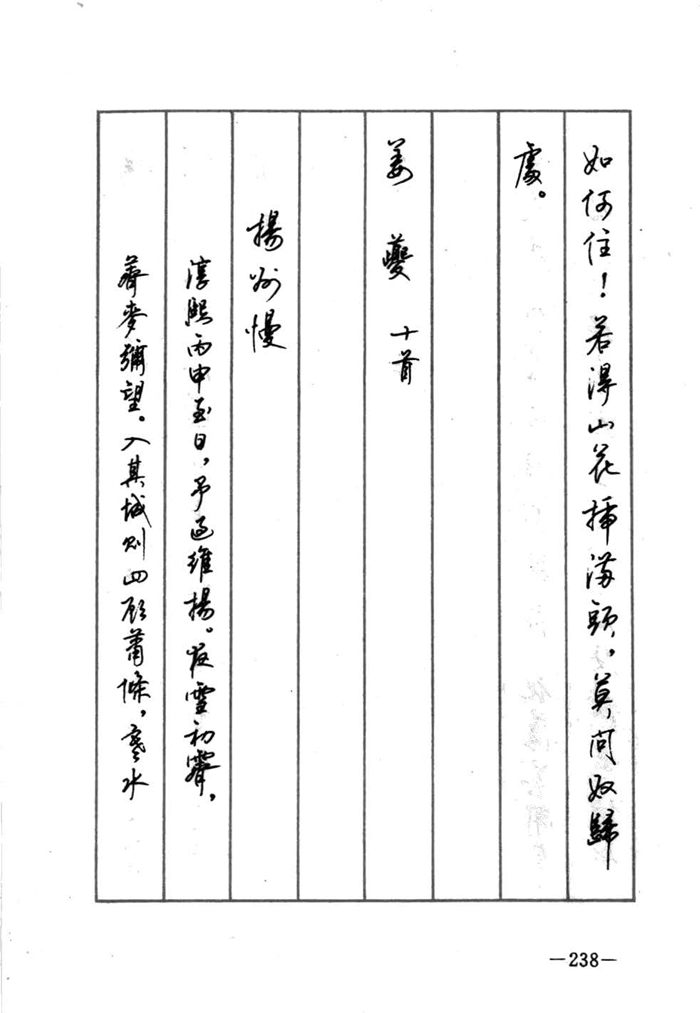 如何住！若得山花插滿頭，莫問奴歸
處。
姜夔 十首
揚州慢
淳熙丙申至日，予過維揚。夜雪初霽，
薺麥彌望。入其城則四顧蕭條，寒水
—238—